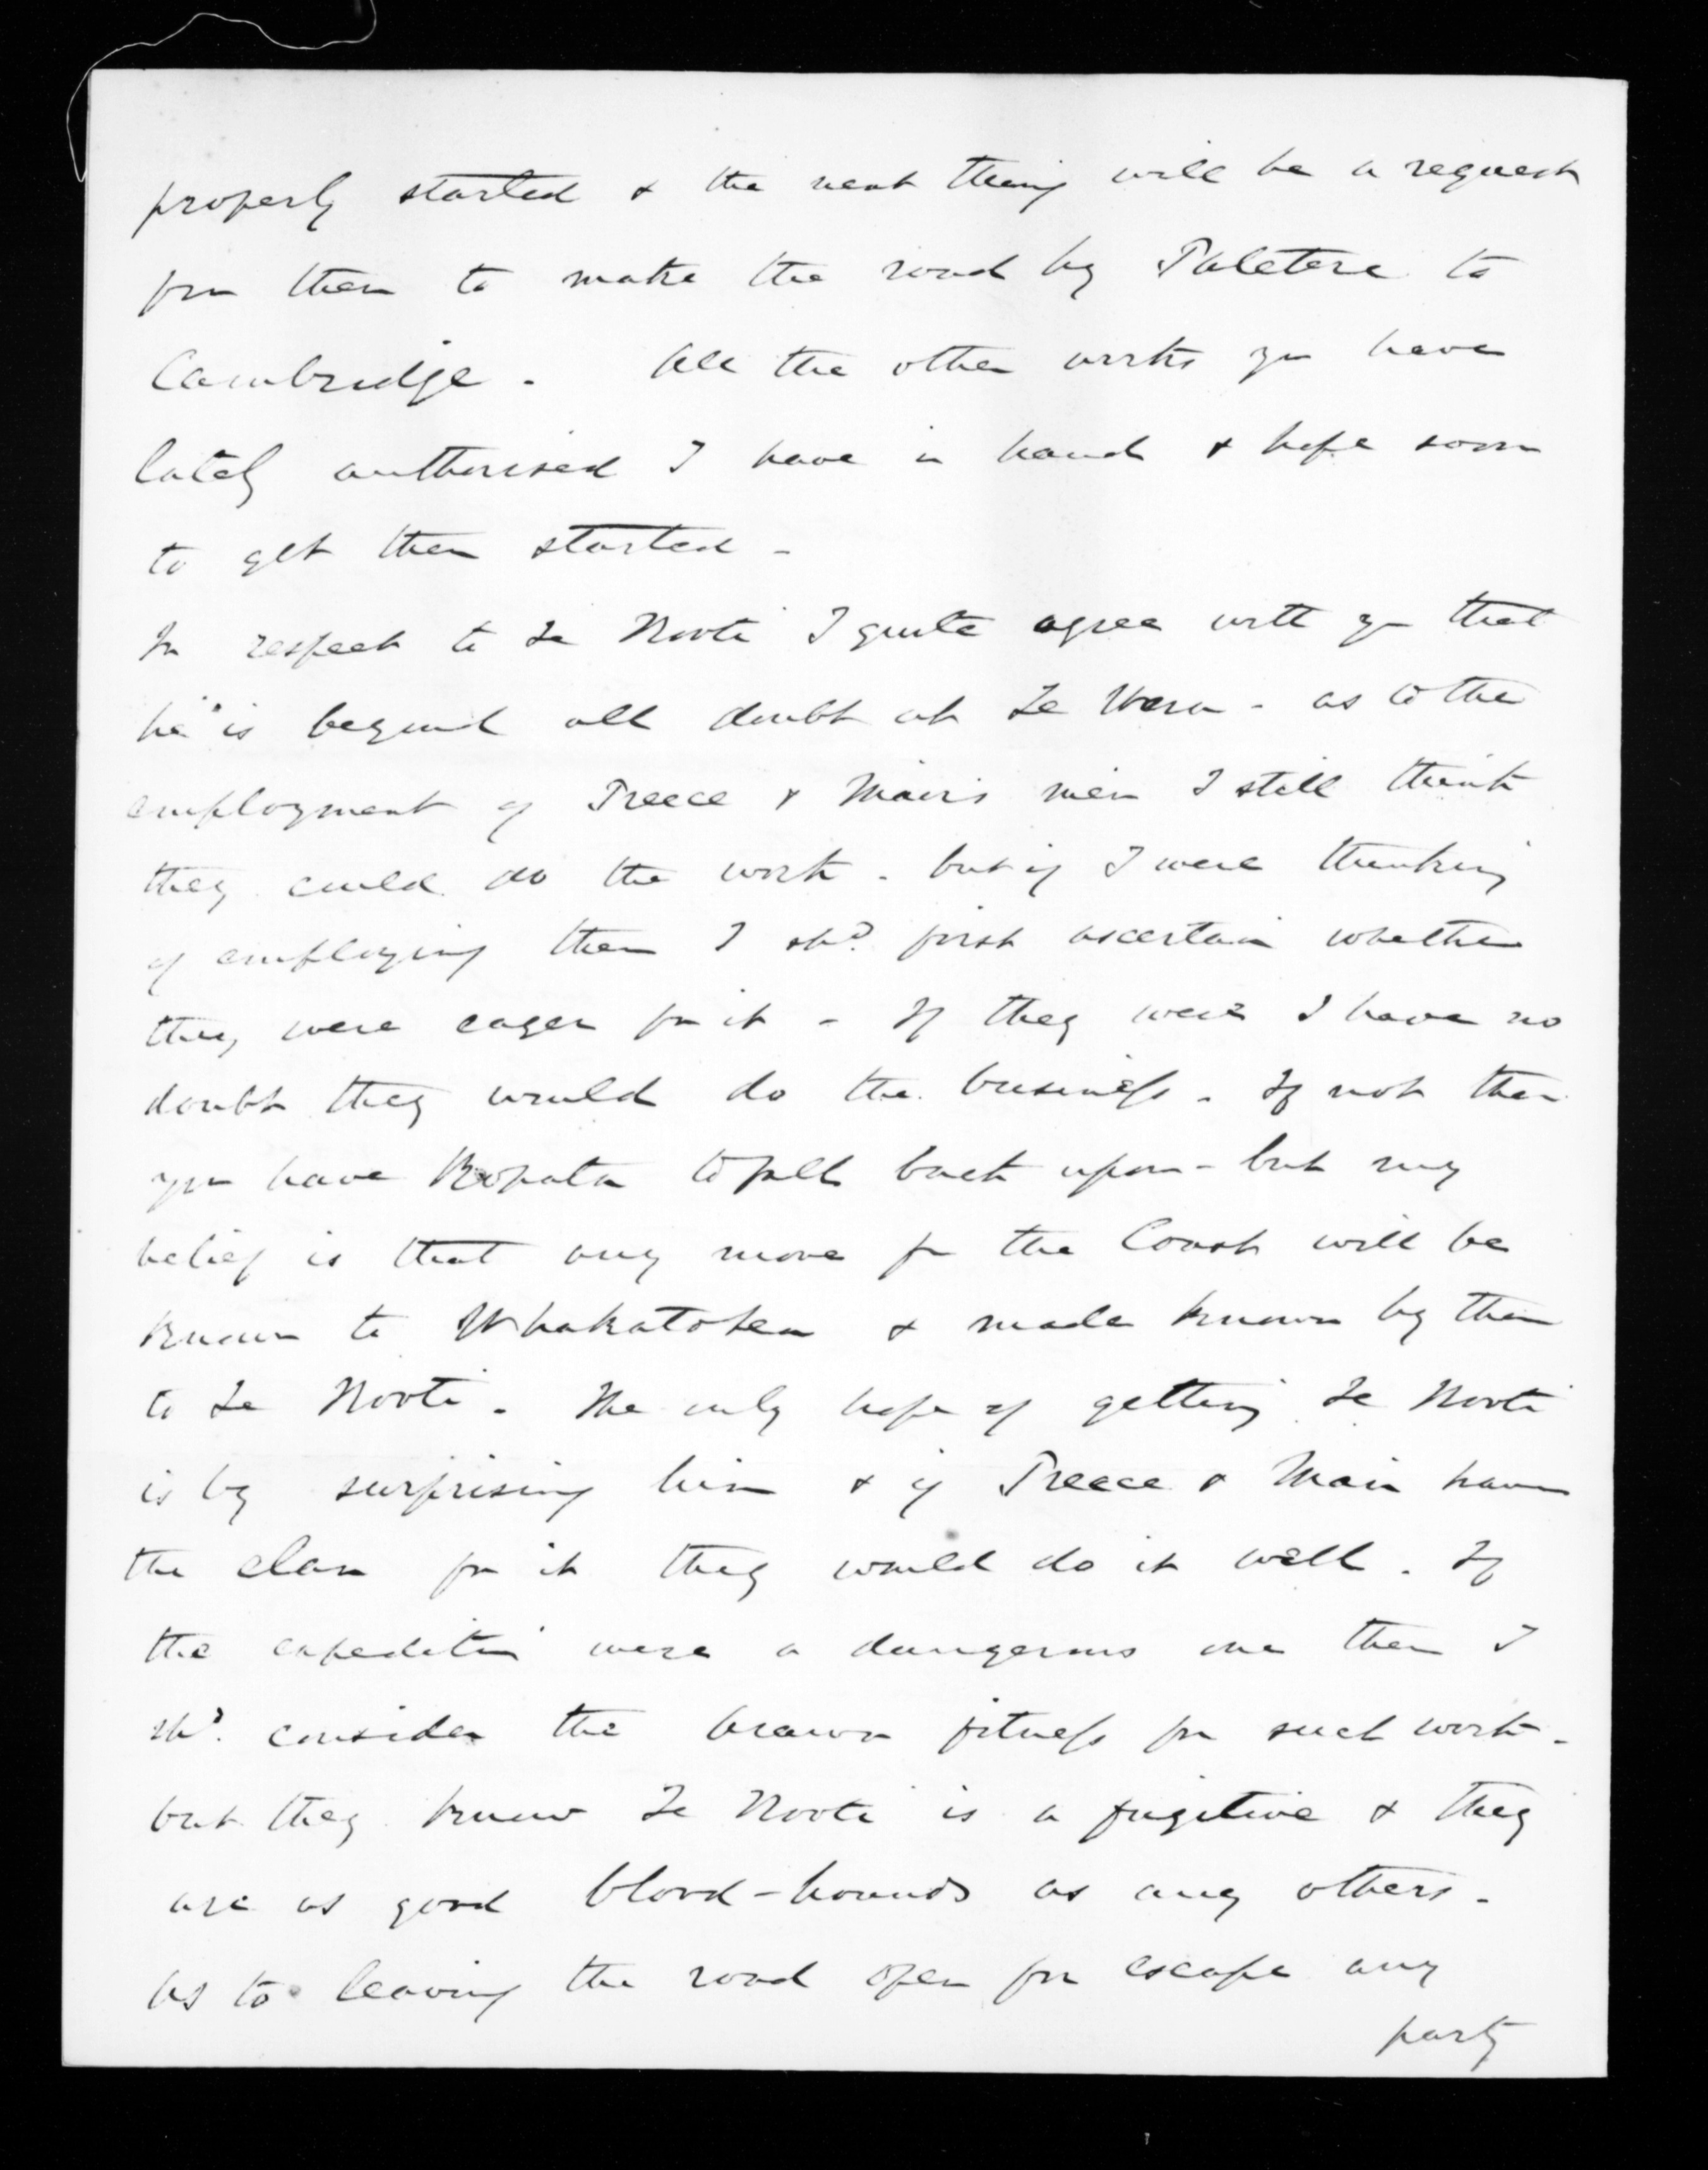 properly started & the next thing will be a request
from them to make the road by Patetere to
Cambridge. All the other works you have
lately authorised I have in hand & hope soon
to get them started -
In respect to Te Kooti I quite agree with you that
he is beyond all doubt at Te Wera - as to the
employment of Preece & Mair's men I still think
they could do the work - but if I were thinking
of employing them I shd. first ascertain whether
they were eager for it - If they were I have no
doubt they would do the business. If not then
you have Ropata to fall back upon - but my
belief is that any move fr the Coast will be
known to Whakatohea & made known by them
to Te Kooti. The only hope of getting Te Kooti
is by surprising him & if Preece & Mair have
the elan for it they would do it well. If
the expedition were a dangerous one then I
shd. consider the Arawa fitness for such work -
but they know Te Kooti is a fugitive & they
are as good blood-hounds as any others -
As to leaving the road open for escape any
party